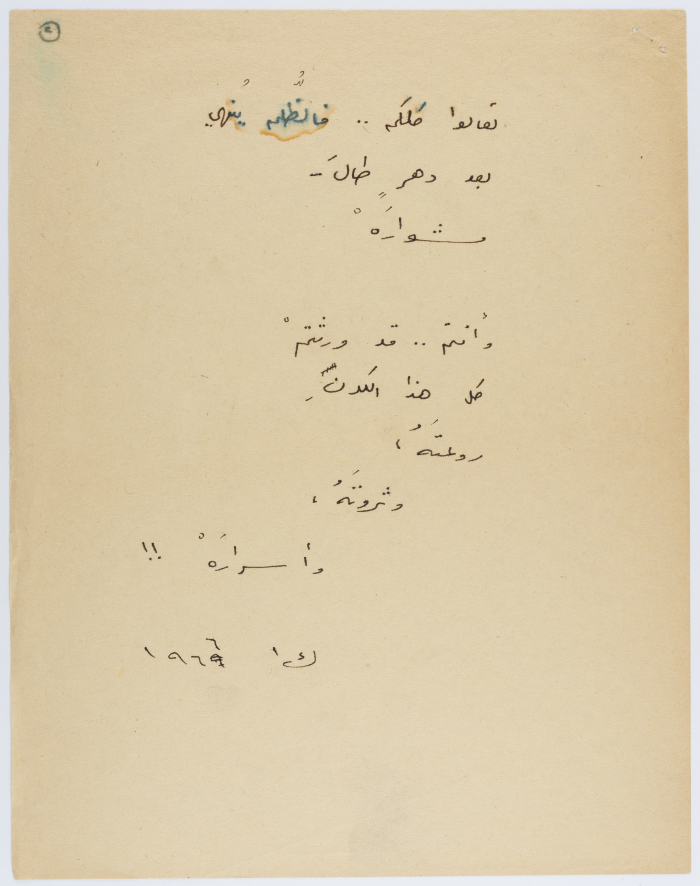 ٢
تعالوا كلكم .. فالظُّلمُ يُنهي
بعد دهرٍ طالَ –
مشوارَهْ
وأنتم .. قد ورثتمْ
كل هذا الكونِ
روعتَهُ ،
وثروتَهُ ،
وأسرارَهْ !!
ك١ ١٩٦٦